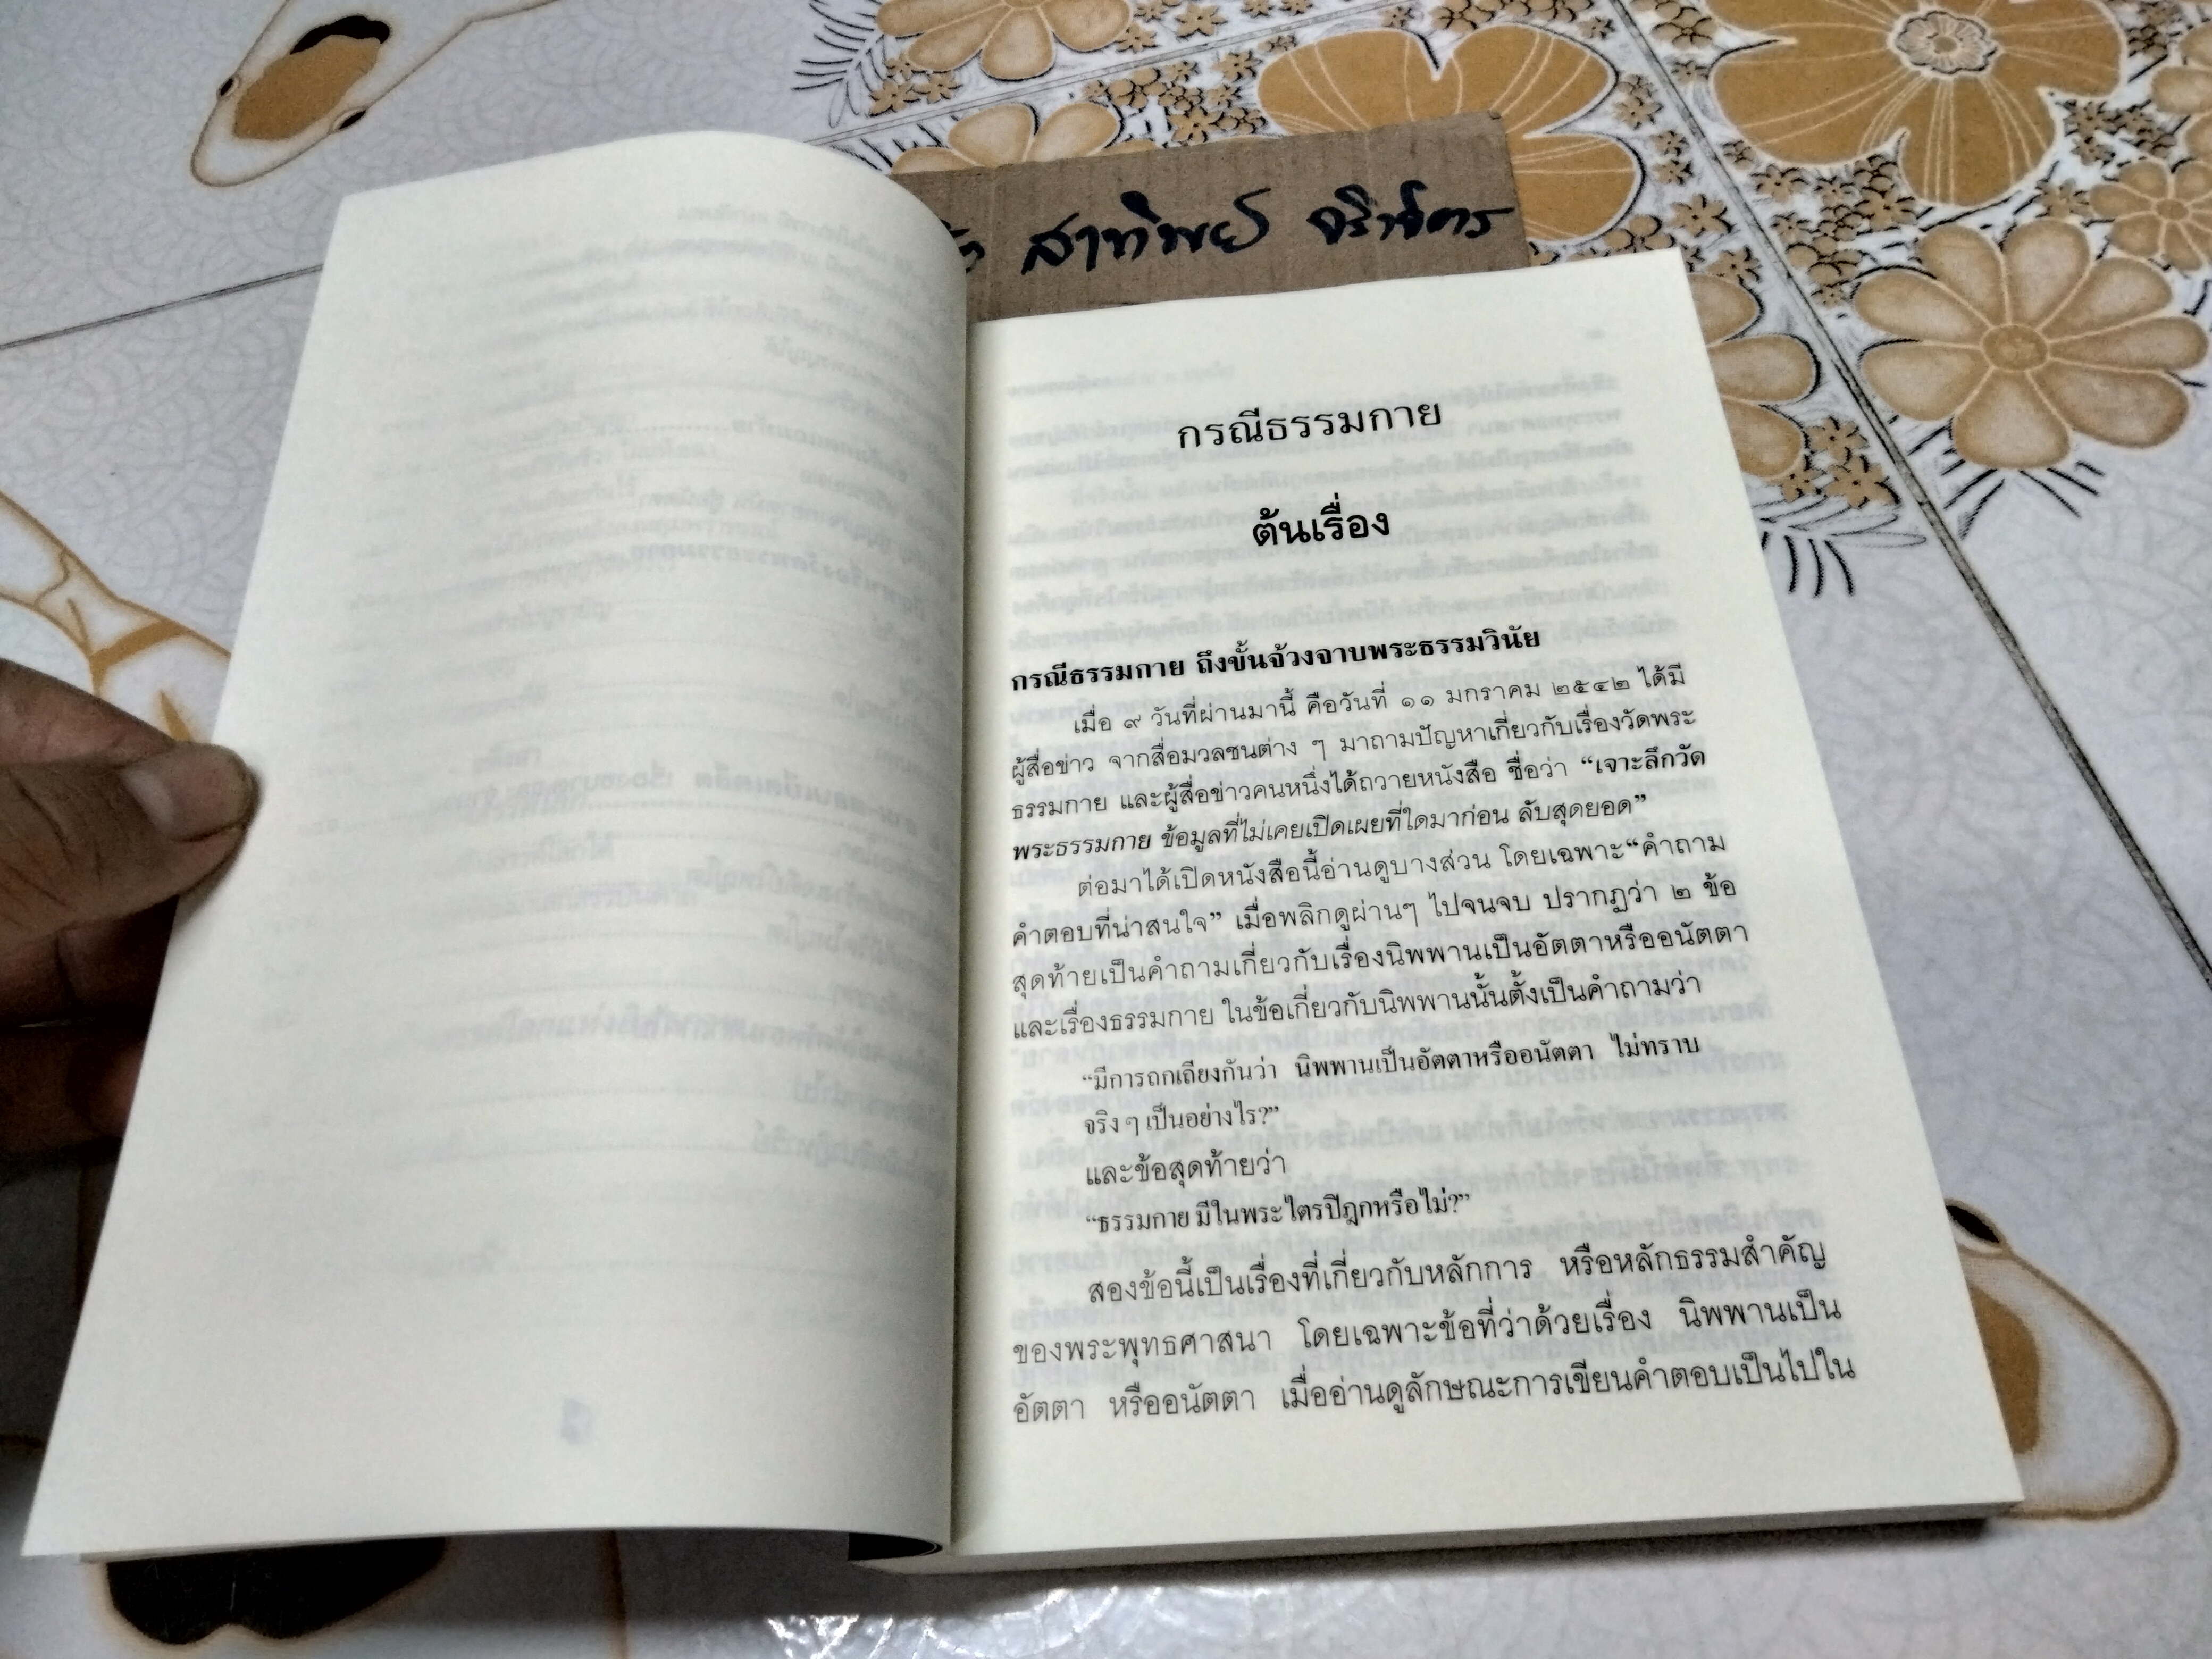 สาทิพย์
กรณีธรรมกาย
ต้นเรื่อง
กรณีธรรมกาย ถึงขั้นจ้วงจาบพระธรรมวินัย
เมื่อ ๙ วันที่ผ่านมานี้ คือวันที่ ๑๑ มกราคม ๒๕๔๒ ได้มี
ผู้สื่อข่าว จากสื่อมวลชนต่าง ๆ มาถามปัญหาเกี่ยวกับเรื่องวัดพระ
ธรรมกาย และผู้สื่อข่าวคนหนึ่งได้ถวายหนังสือ ชื่อว่า “เจาะลึกวัด
พระธรรมกาย ข้อมูลที่ไม่เคยเปิดเผยที่ใดมาก่อน ลับสุดยอด”
ต่อมาได้เปิดหนังสือนี้อ่านดูบางส่วน โดยเฉพาะ“คำถาม
คำตอบที่น่าสนใจ” เมื่อพลิกดูผ่านๆ ไปจนจบ ปรากฏว่า ๒ ข้อ
สุดท้ายเป็นคำถามเกี่ยวกับเรื่องนิพพานเป็นอัตตาหรืออนัตตา
และเรื่องธรรมกาย ในข้อเกี่ยวกับนิพพานนั้นตั้งเป็นคำถามว่า
“มีการถกเถียงกันว่า นิพพานเป็นอัตตาหรืออนัตตา ไม่ทราบ
จริง ๆ เป็นอย่างไร?”
และข้อสุดท้ายว่า
“ธรรมกาย มีในพระไตรปิฎกหรือไม่?”
สองข้อนี้เป็นเรื่องที่เกี่ยวกับหลักการ หรือหลักธรรมสำคัญ
ของพระพุทธศาสนา โดยเฉพาะข้อที่ว่าด้วยเรื่อง นิพพานเป็น
อัตตา หรืออนัตตา เมื่ออ่านดูลักษณะการเขียนคำตอบเป็นไปใน